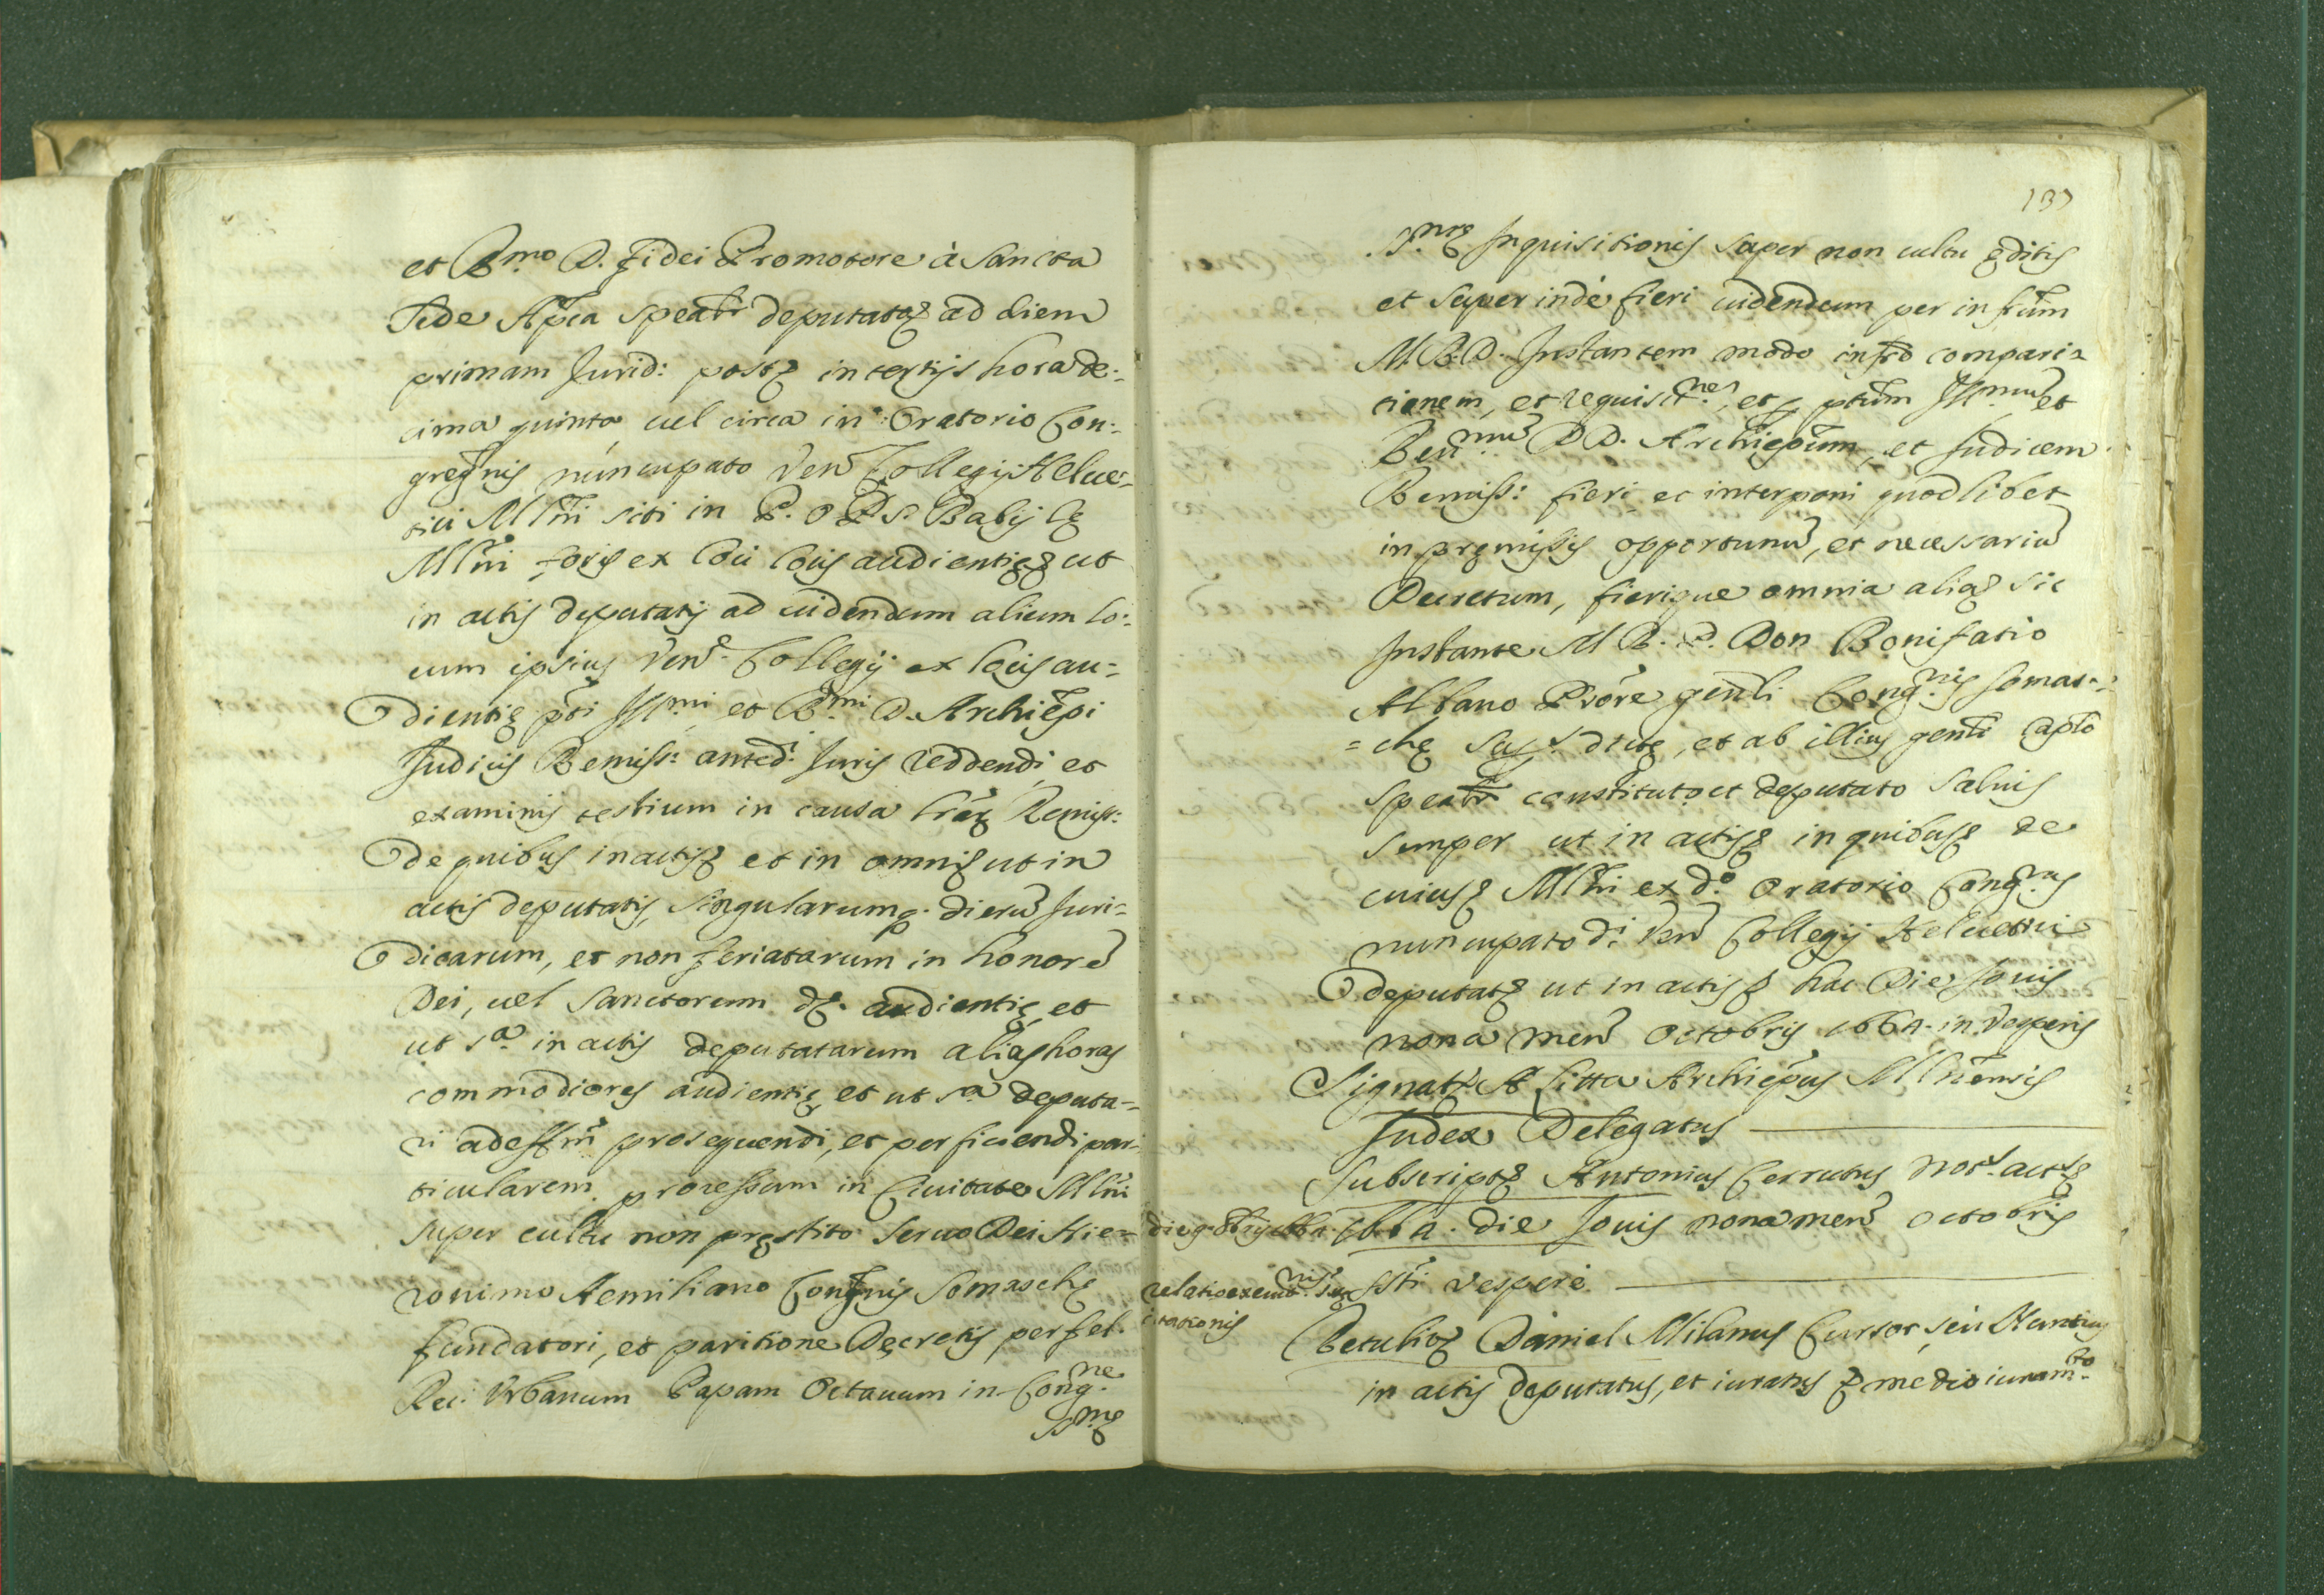 et R.mo D. Fidei Promotore à Sancta
Sede Ap̃ca speatr deputatę ad diem
primam Jurid: postę in tertijs hora de:
cima quinta uel circa in Oratorio Con:
gregñis nuncupato Ven Collegij Helue:
tici Mlñi siti in P. O P.S. Babilę
Mlñi foris ex locis audientię ut
in actis deputatis ad uidendum alium lo:
cum ipsius Ven. Collegij ex locis au=
dientię p̃ti Ill.mi et R.mi D. Archiep̃i
Judicis Remiss: anted: Juris reddendi et
examinis testium in causa lr̃arũ Remiss:
de quibus in actis et in omnis ut in
actis deputatis, singularumq. dierũ Juri=
dicarum, et non feriatarum in honorẽ
Dei, uel Sanctorum audientię et
ut s.a in actis deputatarum alias horas
commodiores audientię et ut s.a deputa-
ri prosequendi, et perficiendi par:
ticularem processum in Ciuitate Mlñi
super cultu non pręstito Seruo Dei Hie=
ronimo Aemiliano Congñis Somaschę
fundatori, et paritione Decretis per fel.
Rec: Vrbanum Papam Octauum in Cong.ne
S.mę
137
S.mę Inquisitionis super non cultu ęditis
et super inde fieri uidendum per infr̃um
M.R.D. Instantem modo infrõ compari=
tionem, et requisit.nes, et p̃ptum Ill.mũ et
Reu.mũ DD. Archiep̃um, et Judicem
Remiss: fieri et interponi quodlibet
in pręmissis opportunũ, et necessariũ
Decretum, fierique omnia alia sic
Instante M R. P. Don Bonifatio
Albano Prõre geñli Cong.nis Somas=
=chę dictę, et ab illius geñli Cap̃lo
speatr constituto et deputato saluis
semper ut in actis in quibus de
cuius Mlñi ex d.o Oratorio Cong.nis
nuncupato d.i Ven Collegij Heluetici
deputatę ut in actis hac Die Jouis
nona Men Octobris 1664. in Vesperis
Signatę A Litta Archiep̃us Mlñensis
Judex Delegatus
Subscriptę Antonius Cerrutus Not. act.
1664. die Jouis nona men Octobris
in Vesperis
die 9 Obris 1664.
relatio executionis
citationis
Retulitę Daniel Milanus Cursor, seu Nuntius
in actis deputatus, et iuratus medio iuram.to